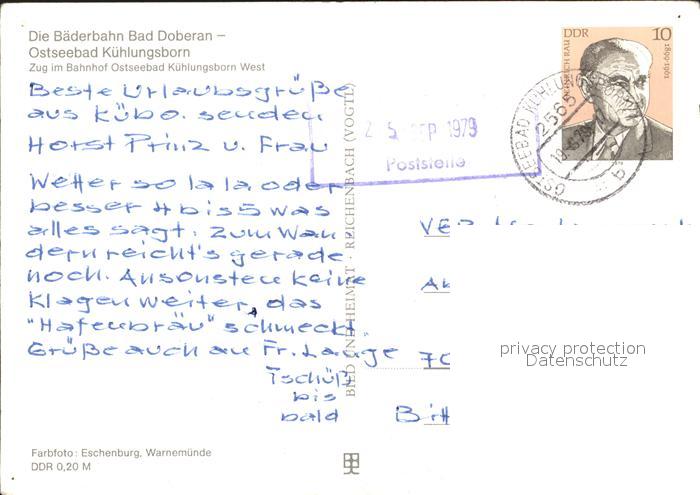 Die Bäderbahn Bad Doberan –
Ostseebad Kühlungsborn
Zug im Bahnhof Ostseebad Kühlungsborn West
Beste Urlaubsgrüße
aus Kübo. senden
Horst Prinz u. Frau
Wetter so la la oder
besser 4 bis 5 was
alles sagt. Zum Wan-
dern reicht's gerade
noch. Ansonsten keine
Klagen weiter, das
"Hafenbräu" schmeckt.
Grüße auch an Fr. Lange
Tschüß
bis
bald
Farbfoto: Eschenburg, Warnemünde
DDR 0,20 M
BILD UND HEIMAT · REICHENBACH (VOGTL)
25. SEP 1979
Poststelle
DDR 10
HEINRICH RAU
1899-1961
OSTSEEBAD KÜHLUNGSBORN
2565
b
VEB
70
privacy protection
Datenschutz